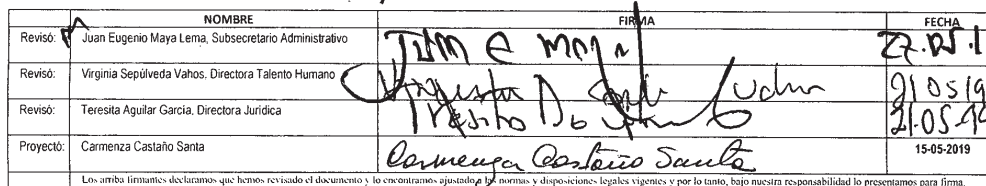 NOMBRE FIRMA FECHA
Revisó: Juan Eugenio Maya Lema, Subsecretario Administrativo
Revisó: Virginia Sepúlveda Vahos, Directora Talento Humano 21 05 19
Revisó: Teresita Aguilar García, Directora Jurídica 21-05-19
Proyectó: Carmenza Castaño Santa Carmenza Castaño Santa 15-05-2019
Los arriba firmantes declaramos que hemos revisado el documento y lo encontramos ajustado a las normas y disposiciones legales vigentes y por lo tanto, bajo nuestra responsabilidad lo presentamos para firma.